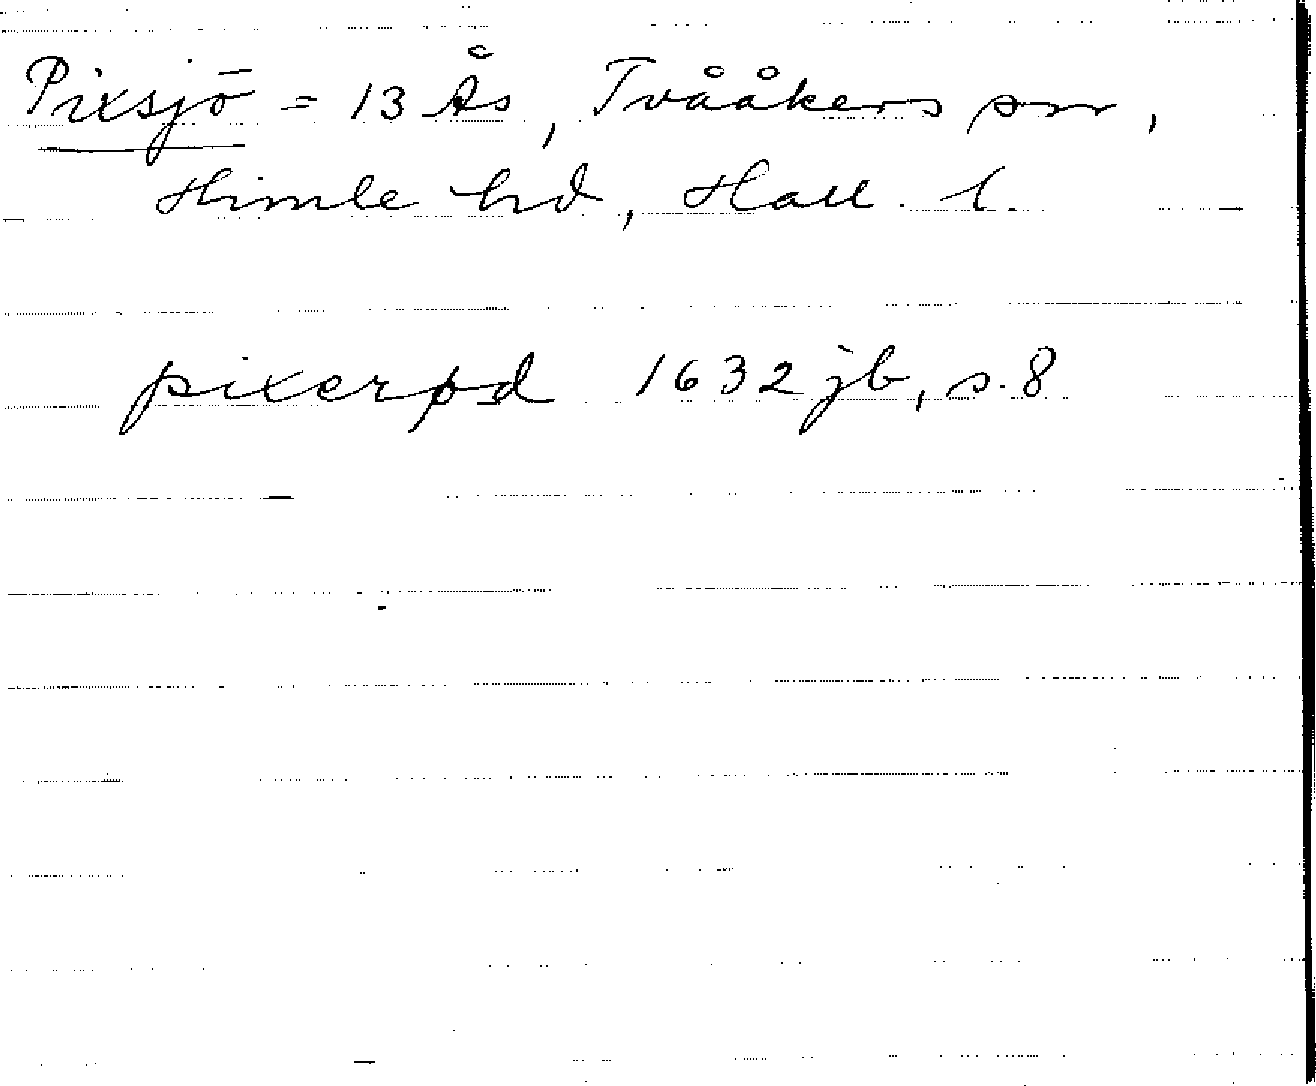 Pixsjö = 13 Ås, Tvååkers sn,
Himle hd, Hall. l.
pixerød 1632 jb, s. 8